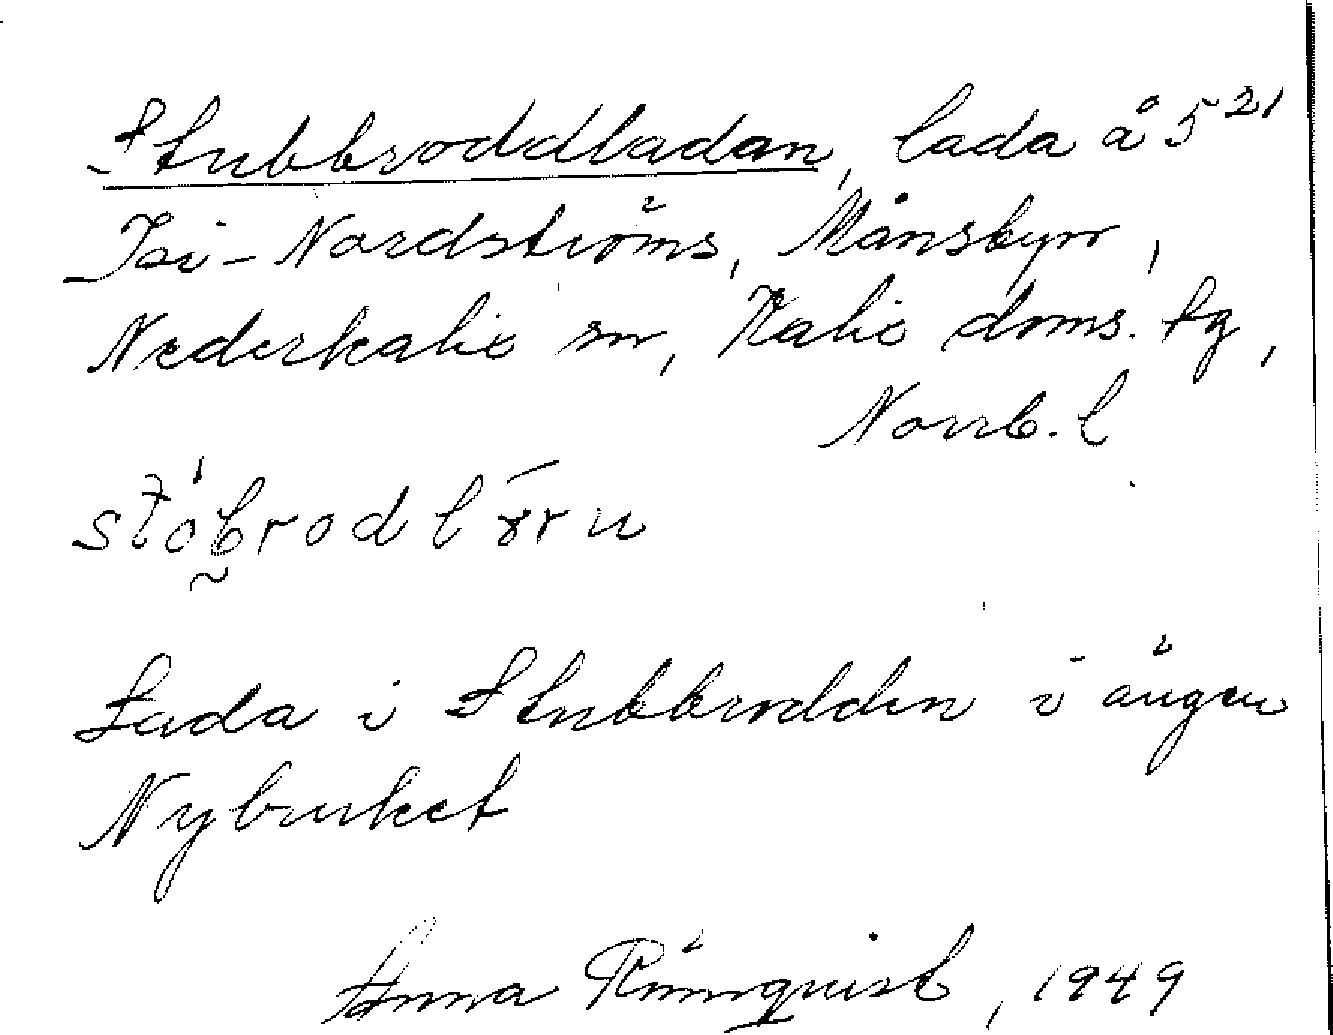 Stubbroddladan, lada å 5²¹
Isi-Nordströms, Månsbyn,
Nederkalix sn, Kalix doms. tg,
Norrb. l
Lada i Stubbrodden i ängen
Nybruket
Anna Rönnquist, 1949